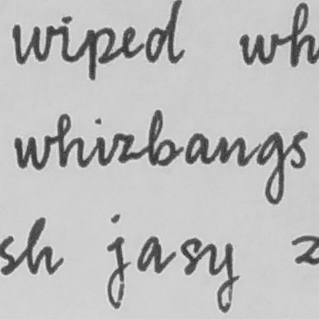 wiped wh
whizbangs
sh jasy z